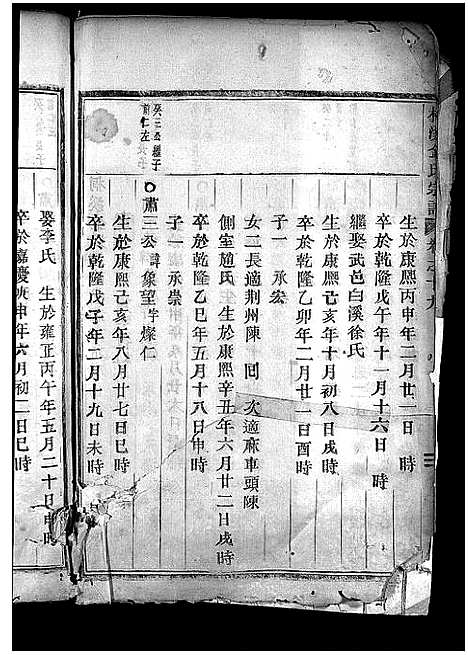 生於康熙丙申年二月廿一日 時
卒於乾隆戊午年十一月十六日 時
繼娶武邑白溪徐氏
生於康熙己亥年十月初八日戌時
卒於乾隆乙卯年二月廿一日酉時
子一 承宏
女二長適荆州陳 回 次適麻車頭陳
側室趙氏 生於康熙辛丑年六月廿二日戌時
卒於乾隆乙巳年五月十八日申時
子一 承崇
癸三公繼子
前仁左
肅三公 諱象望 燦仁
生於康熙己亥年八月廿七日巳時
卒於乾隆戊子年二月十九日未時
娶李氏 生於雍正丙午年五月二十日申時
卒於嘉慶 申年六月初二日巳時